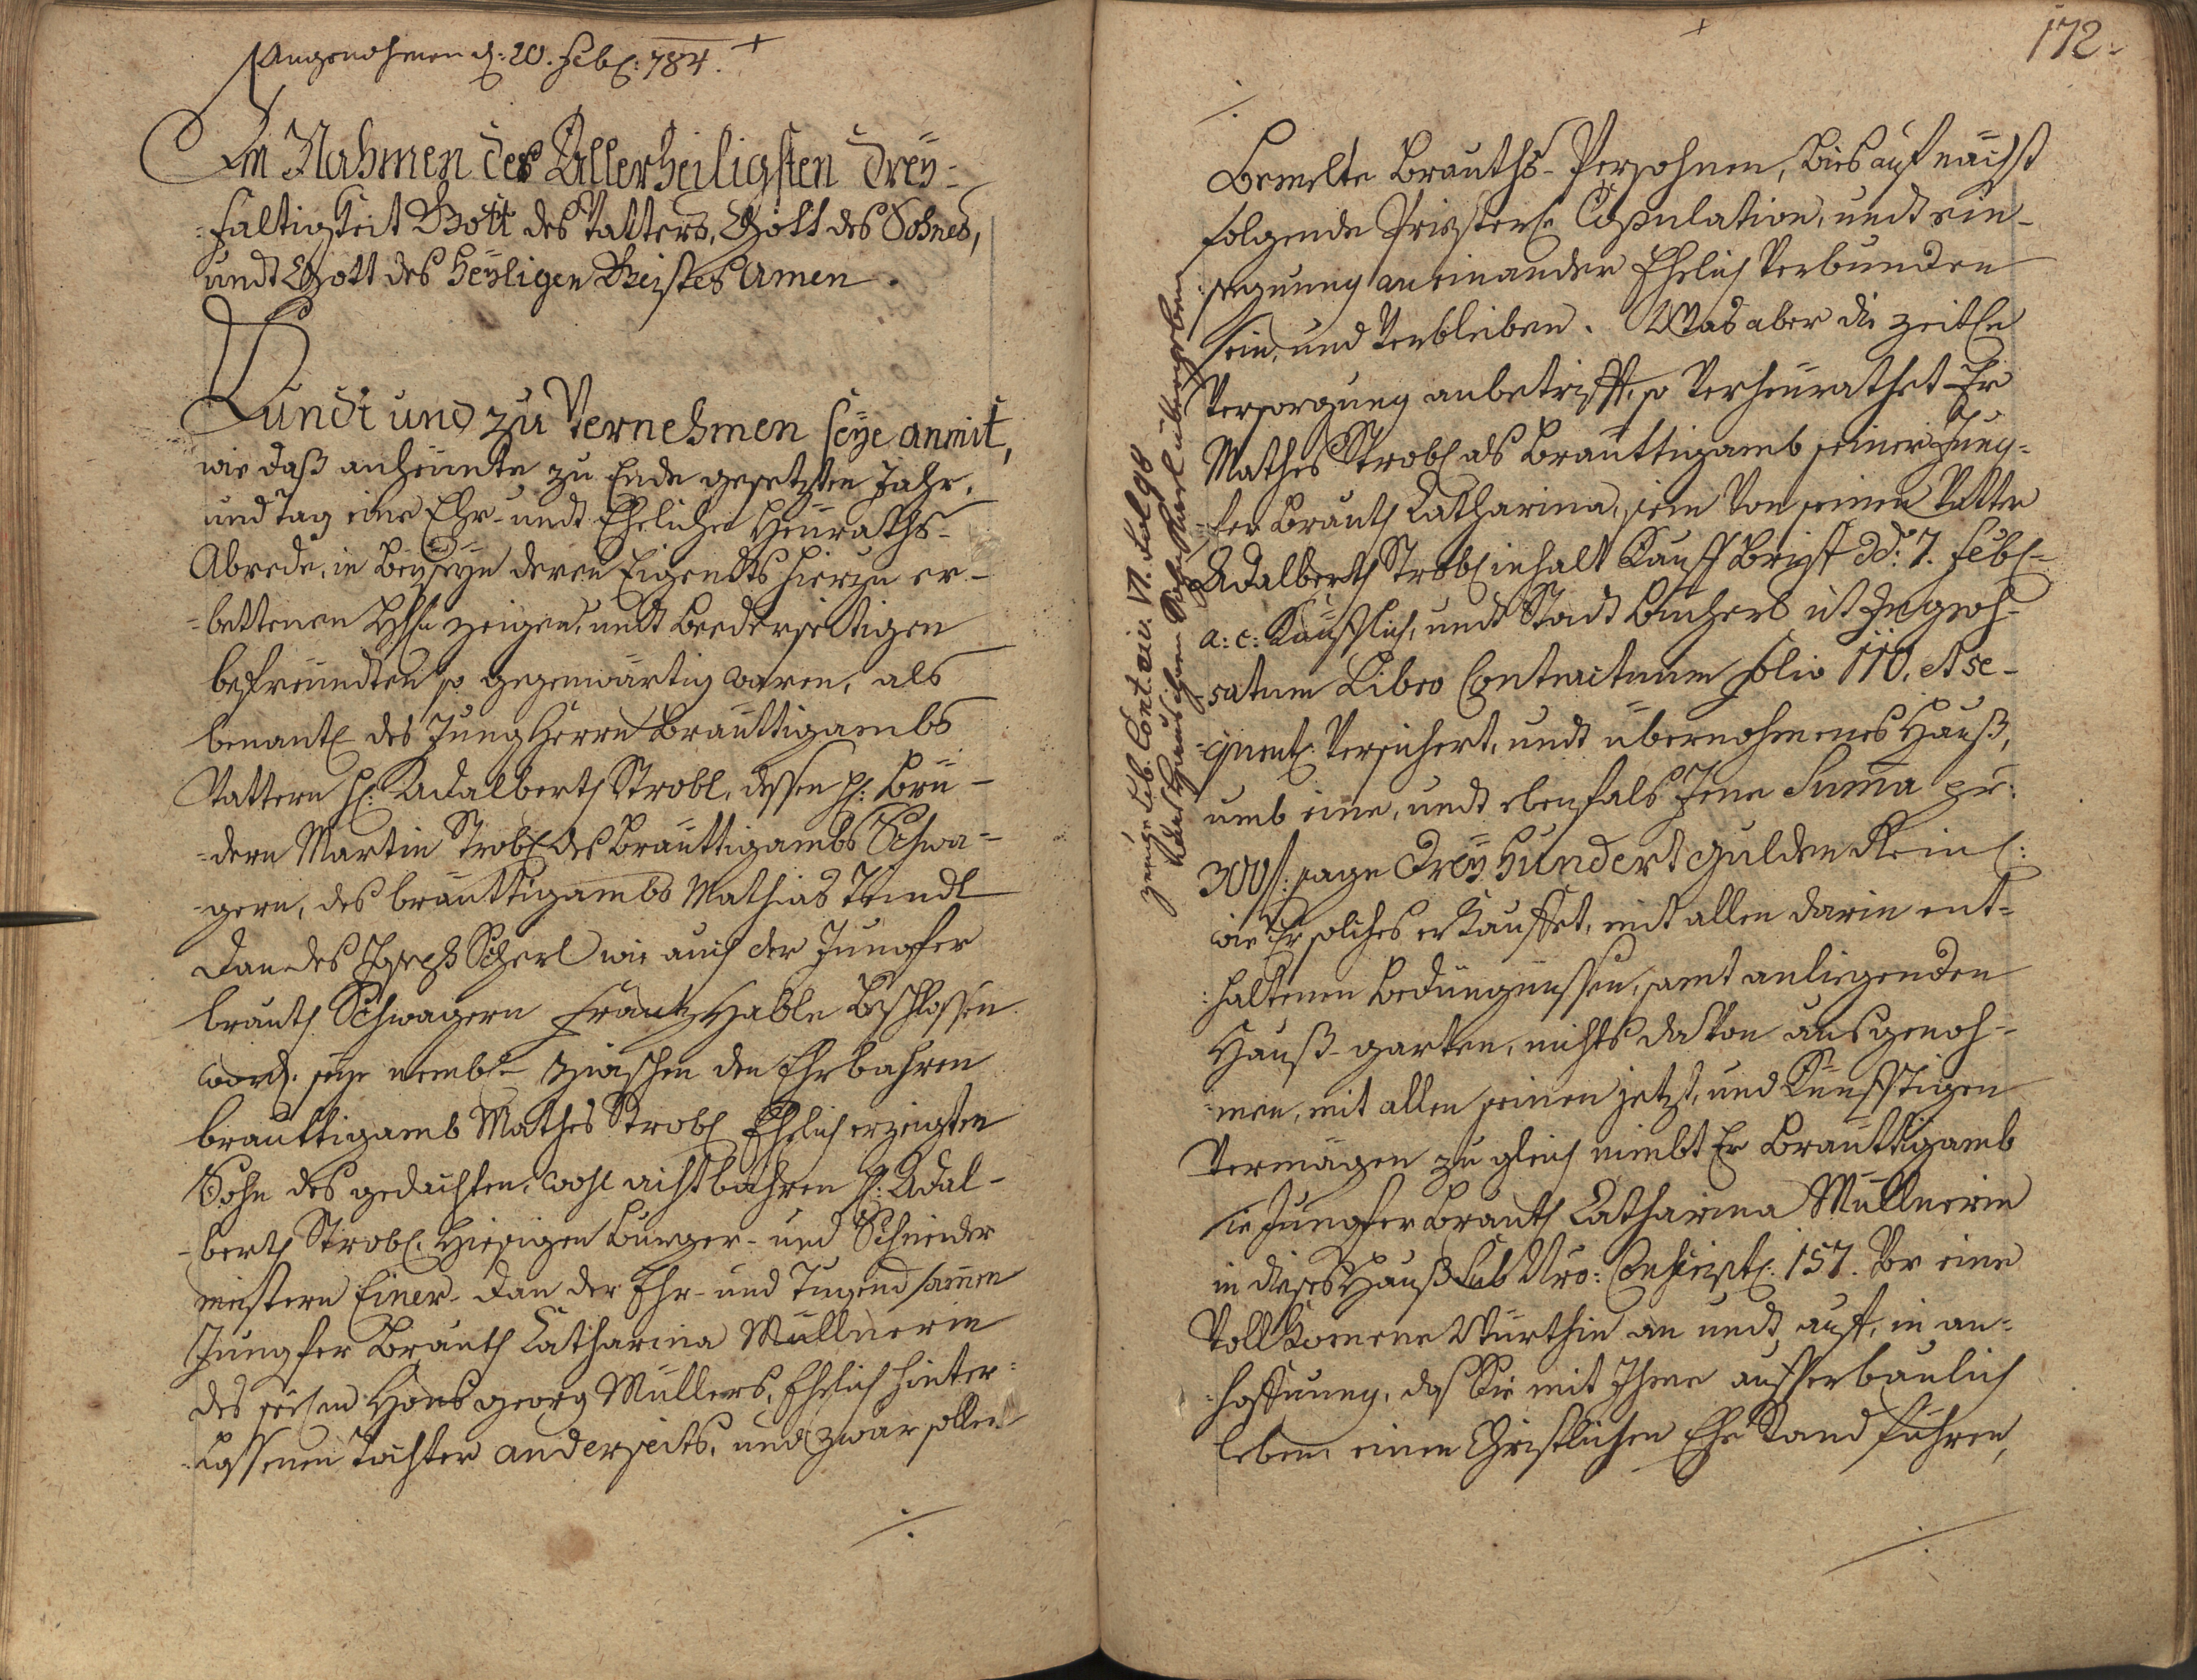 Angenohmen d: 20. Feb: 784.
Im Nahmen der Allerheiligsten Drey=
=faltigkeit Gott des Vatters, Gott des Sohnes,
undt Gott des Heyligen Geistes Amen.
Kundt und zu Vernehmen seye anmit,
wie daß anheunte zu Ende gesetzten Jahr,
und tag eine Ehr- undt Eheliche Heuraths-
Abrede, in Beyseyn deren Eigendts hierzu er-
=bettenen zeigen, undt beederseithigen
befreundten so gegenwärtig waren, als
benantl des Jung Herrn Bräuttigambs
Vattern H: Adalberth Strobl, dessen H: Brü-
=dern Martin Strobl des Bräuttigambs Schwa=
=gern, des bräuttigambs Mathias Teindl
dan des Joseph Scherl wie auch der Jungfer
brauth Schwagern Frantz Hable Beschlossen
word. seye nembl- zwischen den Ehrbahren
bräuttigamb Mathes Strobl Ehelich erzeigten
Sohn des gedachten, wohl achtbahren H: Adal-
-berth Strobl Hiesigen Burger- und Schneider
meistern Einer- dan der Ehr- und Tugendsamen
Jungfer Brauth Catharina Müllnerin
des Hans georg Müllers, Ehelich hinter=
=lassenen Tochter anderseits, und zwar sollen
172.
Bemelte Brauths-Persohnen, bies auf nächst
folgende Priesterl: Copulation, undt ein-
segnung aneinander Ehelich Verbunden
sein, und Verbleiben. Was aber die zeitle
Versorgung anbetrifft, so Verheurathet Er
Mathes Strobl als Bräuttigamb seiner Jung=
=fer Brauth Catharina, sein Von seinen Vatter
Adalberth Strobl inhalt Kauff Brief dd: 7. Feb-
a: c: Kaüfflich, undt Stadt Büchern ut Ingroh-
satum Libro Contractuum Folio 110, et se-
=quentl Versichert, undt übernohmenes Hauß,
umb eine, undt ebenfals Jene Suma per:
300 f: sage Drey Hundert gulden Reinl:
wie Er solches erkauffet, mit allen darin ent=
=haltenen Bedüngnussen, samt anliegenden
Hauß-garten, nichts davon ausgenoh-
=men, mit allen seinen jetzt, und Künfftigen
Vermögen zu gleich nimbt Er Bräuttigamb
sie Jungfer Brauth Catharina Müllnerin
in dieses Hauß Sub Nro: Conscript: 157. Vor eine
Vollkomene Würthin an undt auff, in an=
=hoffnung, das Sie mit Ihme aufferbaulich
leben, einen Christlichen Ehe Stand führen,
zeuge Lib. Cont. civ. VI. Fol 98